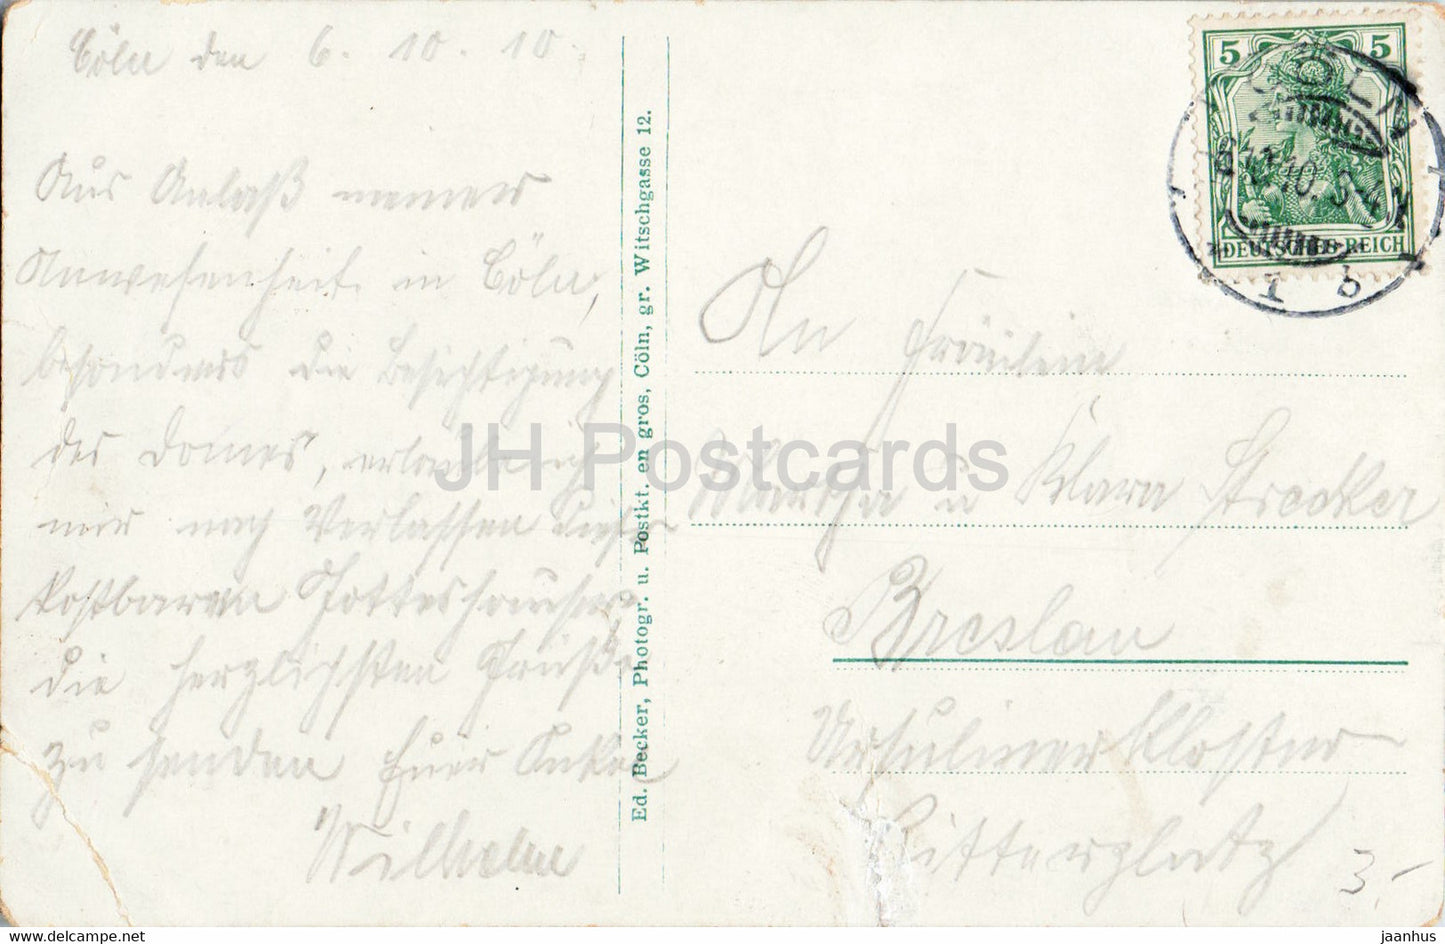 Cöln den 6. 10. 10.
Aus Anlaß meiner
Anwesenheit in Cöln,
besonders die Besichtigung
des Domes, erlaube ich
mir nach Verlassen dieses
kostbaren Gotteshauses
die herzlichsten Grüße
zu senden Euer Onkel
Wilhelm
Ed. Becker, Photogr. u. Postkt. en gros, Cöln, gr. Witschgasse 12.
5 5
DEUTSCHES REICH
CÖLN
6.10.10. 3-4 N
1 b
An Fräulein
Martha u Klara Strecker
Breslau
Ursuliner Kloster
Ritterplatz
3.-
JH Postcards
www.delcampe.net
jaanhus